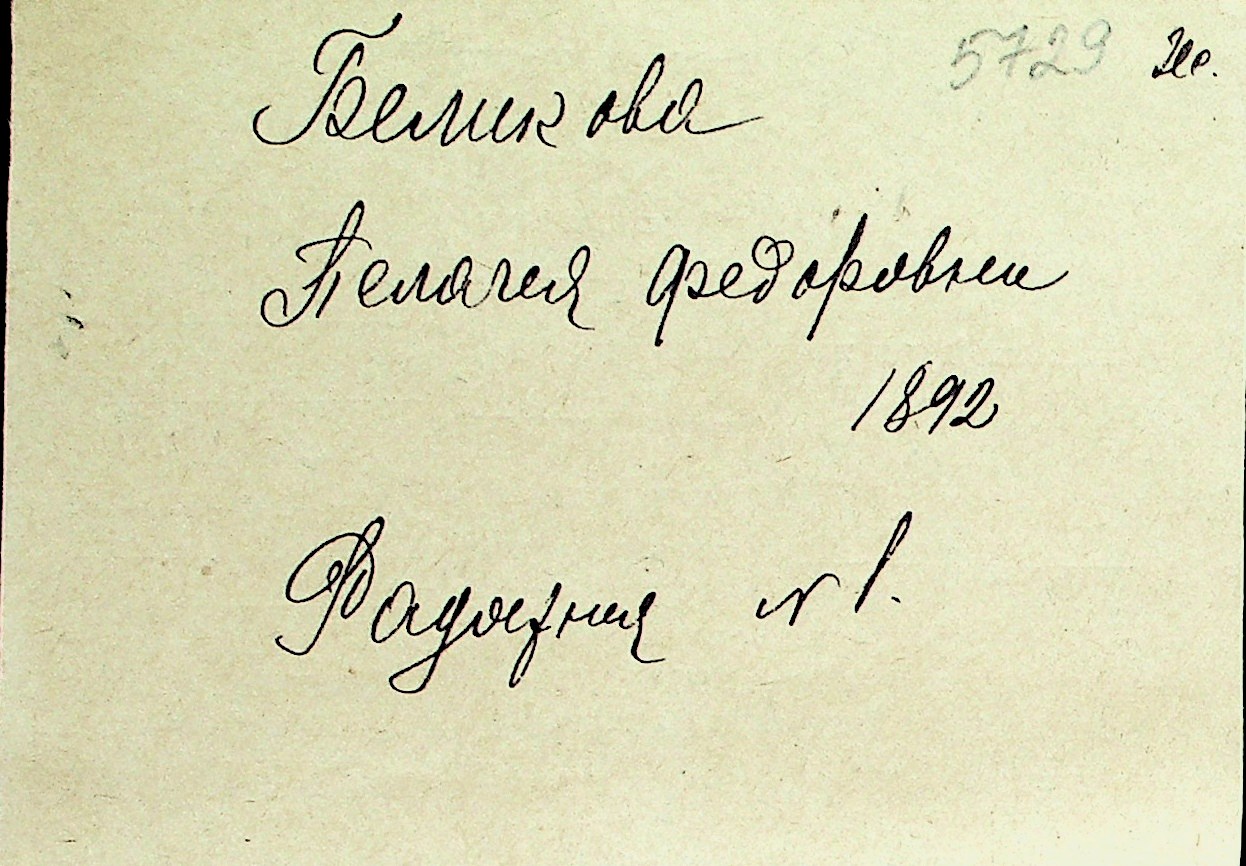 5729
Беликова
Пелагея Федоровна
1892
№ 1.